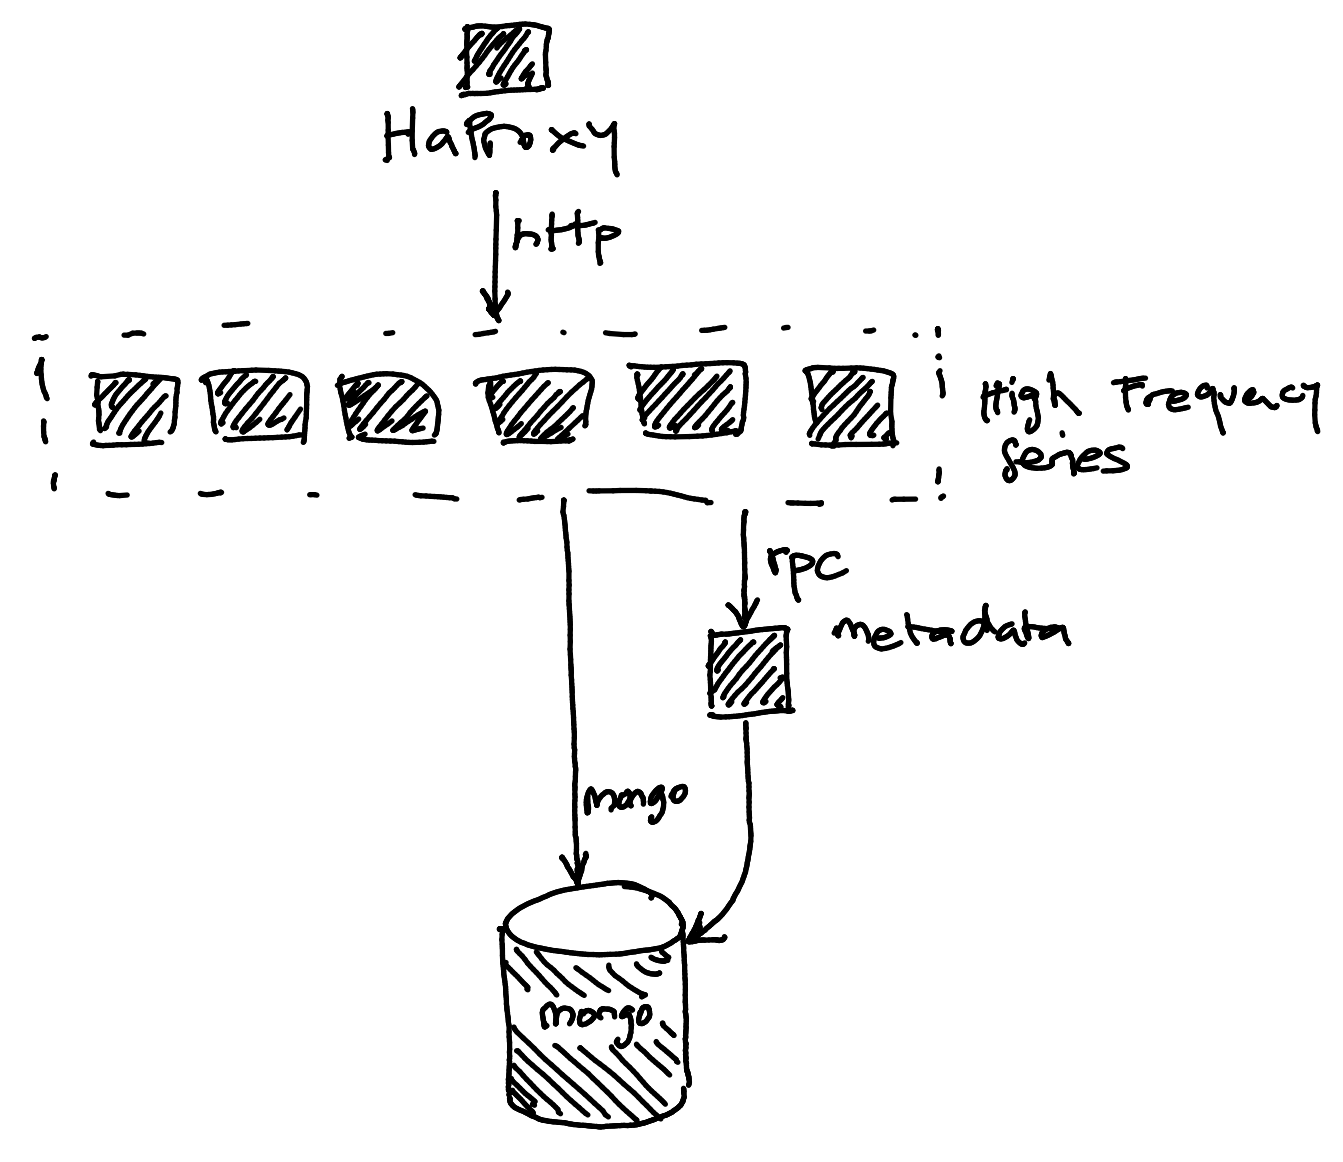 HaProxy
http
High Frequency
series
rpc
metadata
mongo
mongo